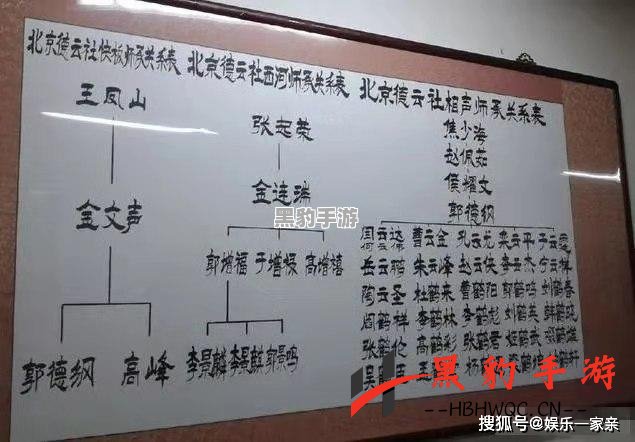 北京德云社快板师承关系表
王凤山
金文声
郭德纲 高峰
北京德云社西河师承关系表
张志荣
金连瑞
郭增福 于增禄 高增禧
李景麟 李景麟 郭景鸣
北京德云社相声师承关系表
焦少海
赵佩茹
侯耀文
郭德纲
周云达 曹云金 孔云龙 栾云平 于云霆
岳云鹏 朱云峰 赵云侠 李云杰 宁云祥
陶云圣 杜鹤来 曹鹤阳 郭鹤鸣 刘鹤春
阎鹤祥 李鹤林 李鹤彪 刘鹤英
张鹤伦 高鹤彩 张鹤君
吴
黑豹手游
黑豹手游
--HBHWQC.CN--
搜狐号@娱乐一家亲